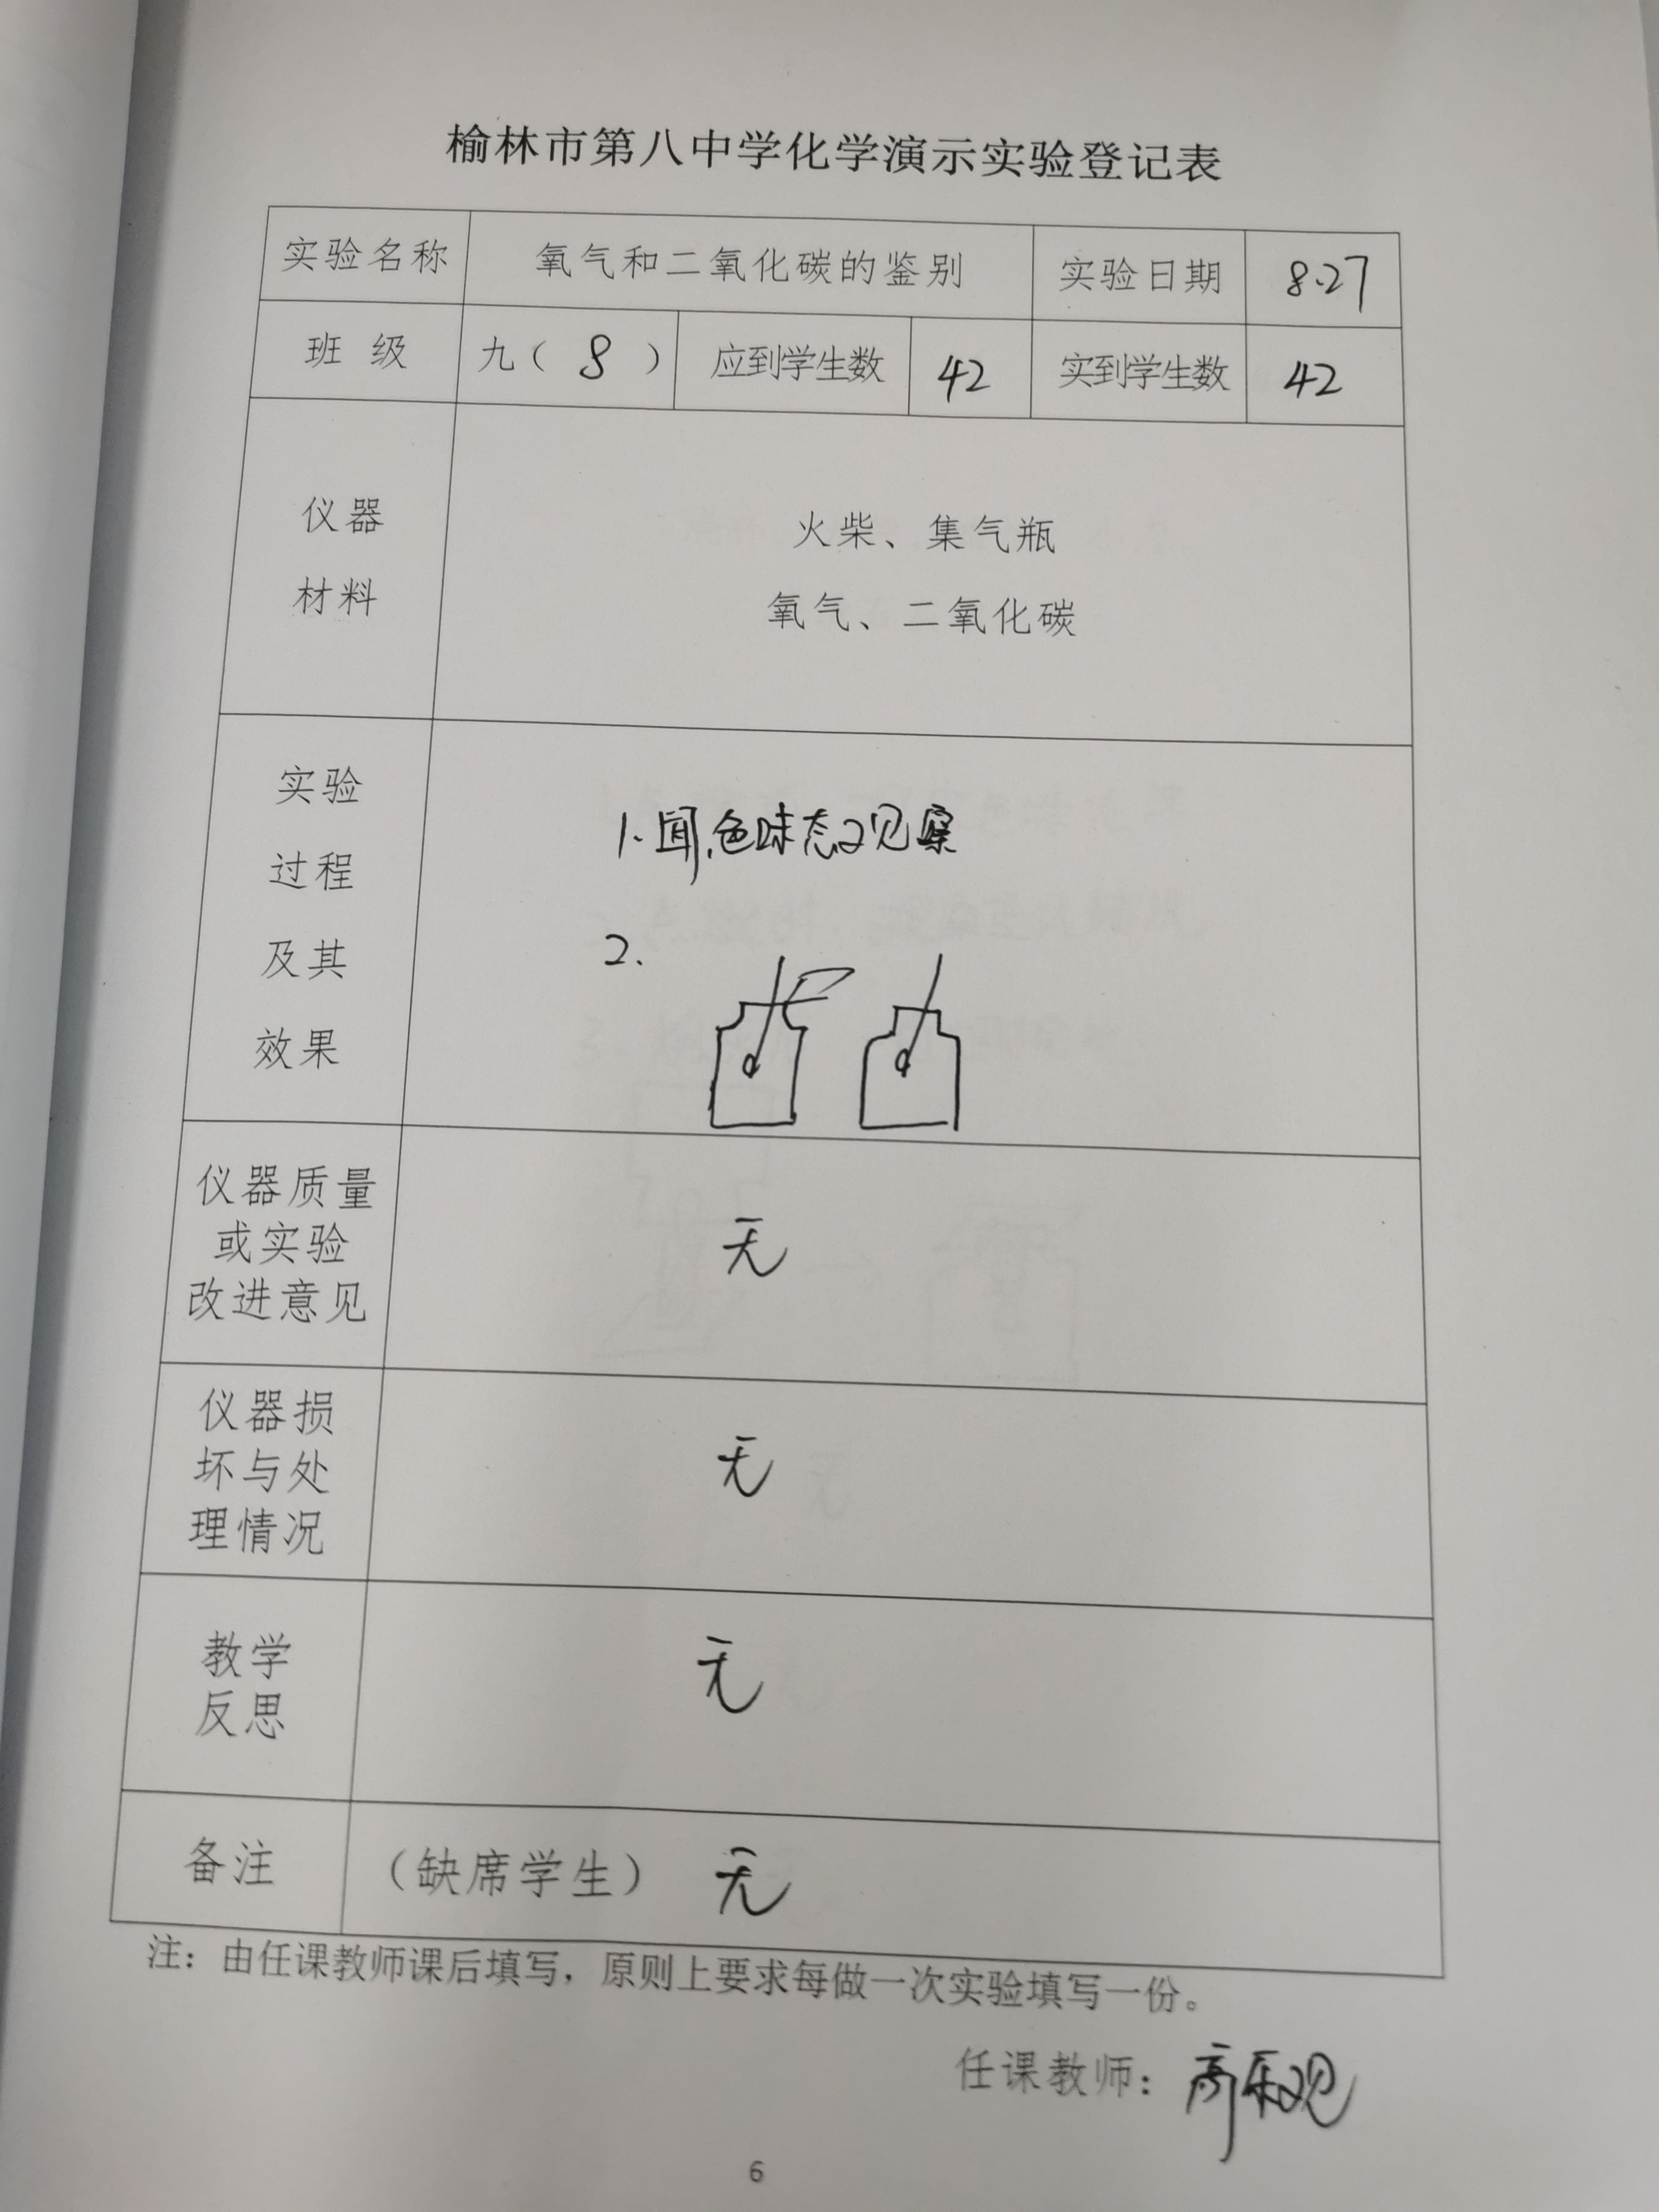 榆林市第八中学化学演示实验登记表
实验名称 氧气和二氧化碳的鉴别 实验日期 8.27
班 级 九（ 8 ） 应到学生数 42 实到学生数 42
仪器
材料
火柴、集气瓶
氧气、二氧化碳
实验
过程
及其
效果
1.闻.色味态观察
2.
仪器质量
或实验
改进意见
无
仪器损
坏与处
理情况
无
教学
反思
无
备注 （缺席学生） 无
注：由任课教师课后填写，原则上要求每做一次实验填写一份。
任课教师：高乐观
6